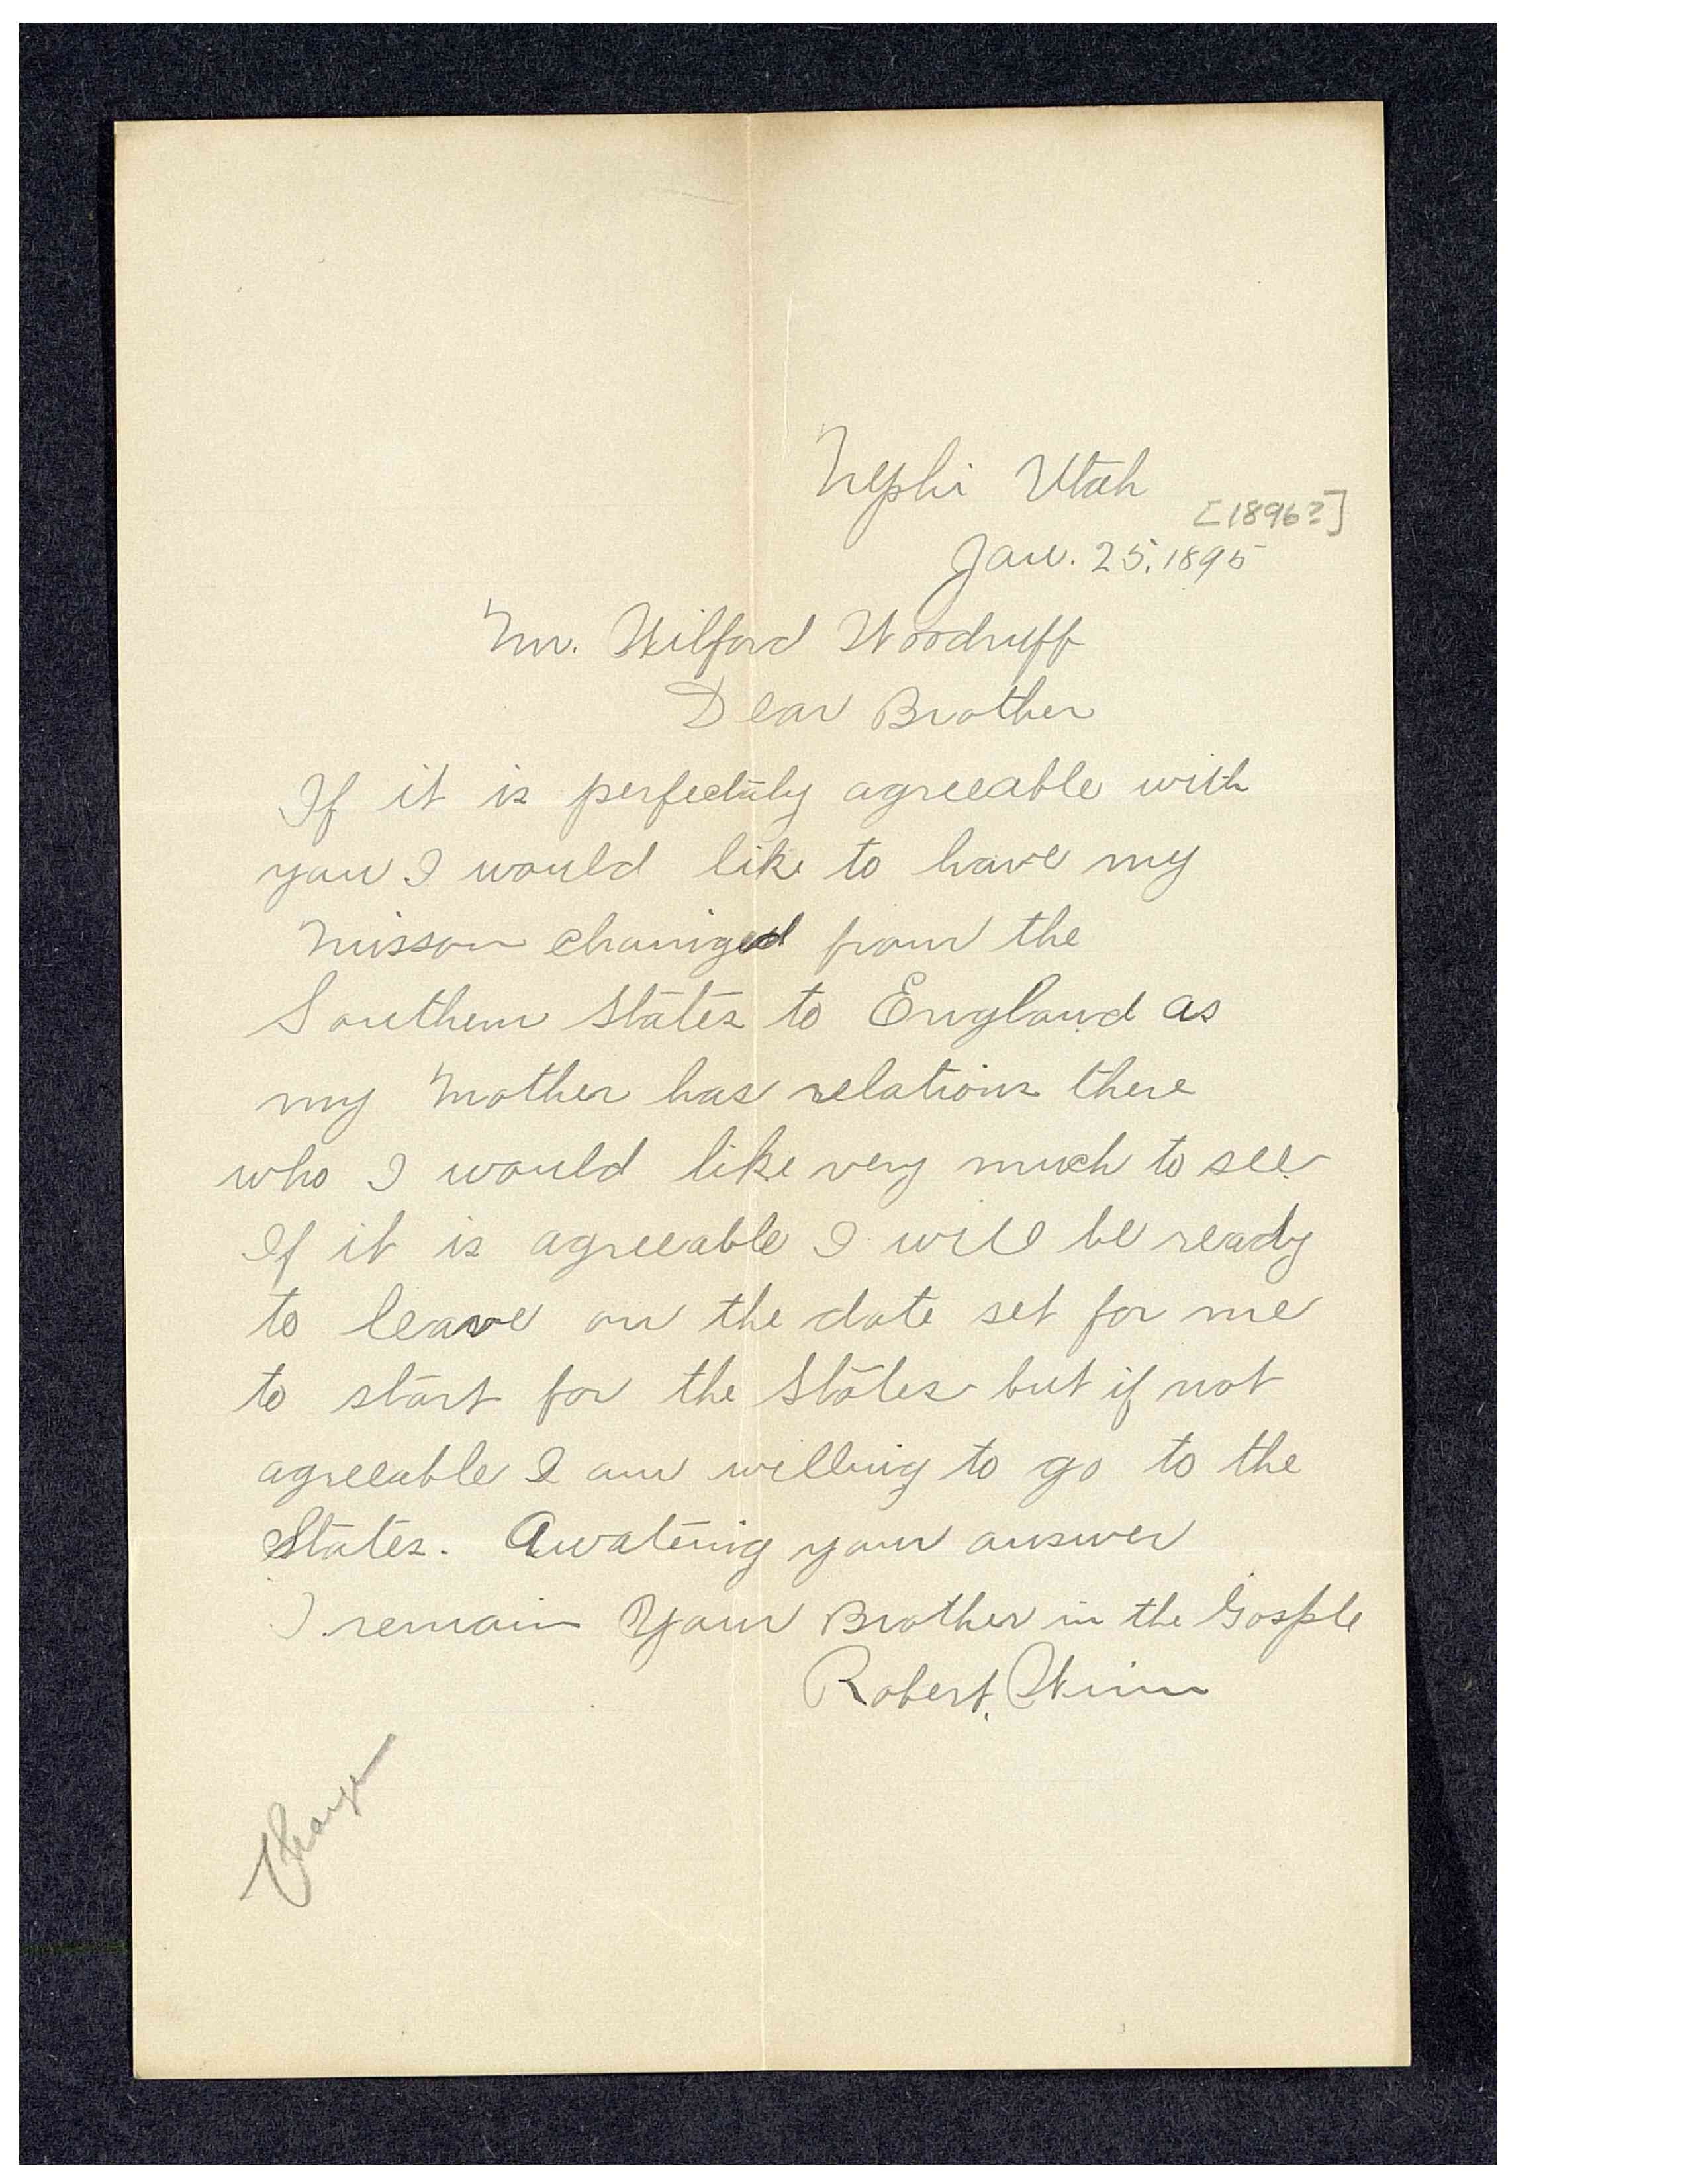 Nephi Utah
[1896?]
Jan. 25, 1895
Mr. Wilford Woodruff
Dear Brother
If it is perfectuly agreeable with
you I would like to have my
Misson changed from the
Southern States to England as
my Mother has relations there
who I would like very much to see.
If it is agreeable I will be ready
to leave on the date set for me
to start for the States but if not
agreeable I am willing to go to the
States. Awateing your answer
I remain Your Brother in the Gosple
Robert. Winn
Change